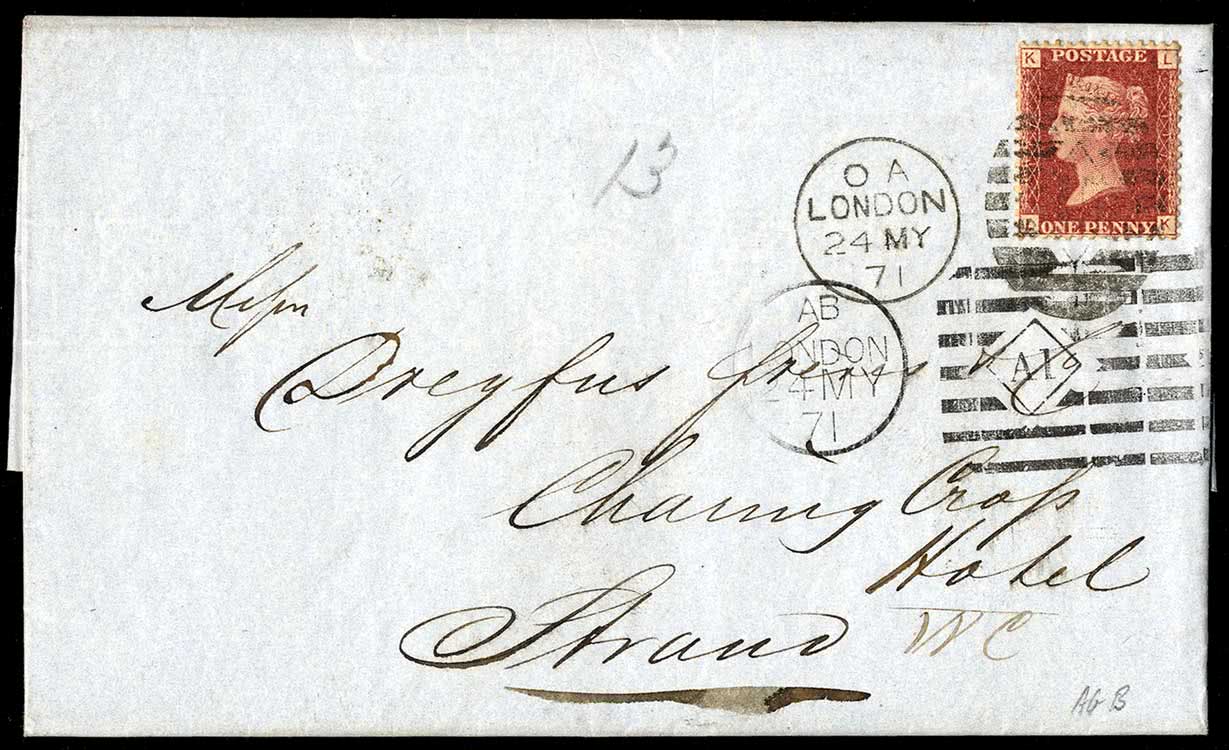 K POSTAGE L
ONE PENNY K
13
O A
LONDON
24 MY
71
AB
LONDON
24 MY
71
A1
Messrs
Dreyfus freres & Co
Charing Cross
Hotel
Strand
WC
AG B